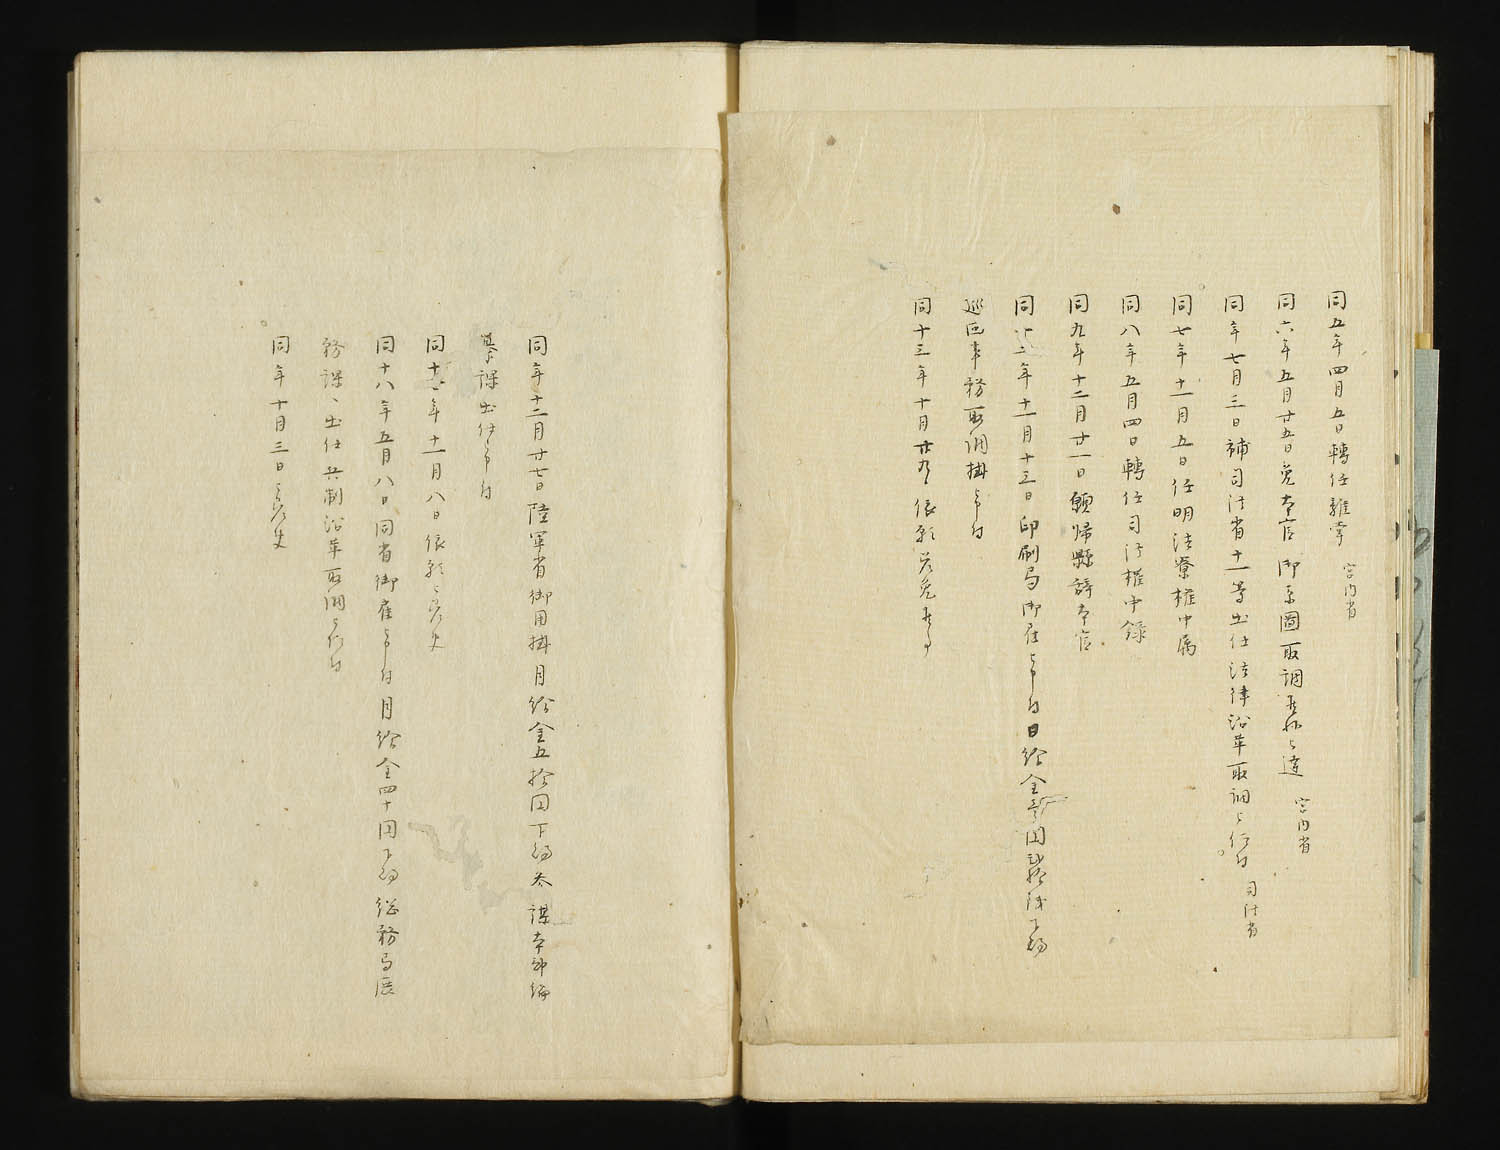 同五年四月五日轉任雜掌 宮内省
同六年五月廿五日免本官 御系圖取調 達 宮内省
同年七月三日補司法省十一等出仕法律沿革取調被仰付 司法省
同七年十一月五日任明法寮權中属
同八年五月四日轉任司法權中錄
同九年十二月廿一日願歸縣辞本官
同十二年十一月十三日印刷局御雇被申付日給金壱圓 錢下賜
巡回事務取調掛被申付
同十三年十月廿九 依願差免
同年十二月廿七日陸軍省御用掛月給金五拾円下賜参謀本部編
纂課出仕被申付
同十 年十一月八日依願被差免
同十八年五月八日同省御雇被申付月給金四十円下賜総務局庶
務課ヘ出仕兵制沿革取調被仰付
同年十月三日被差免